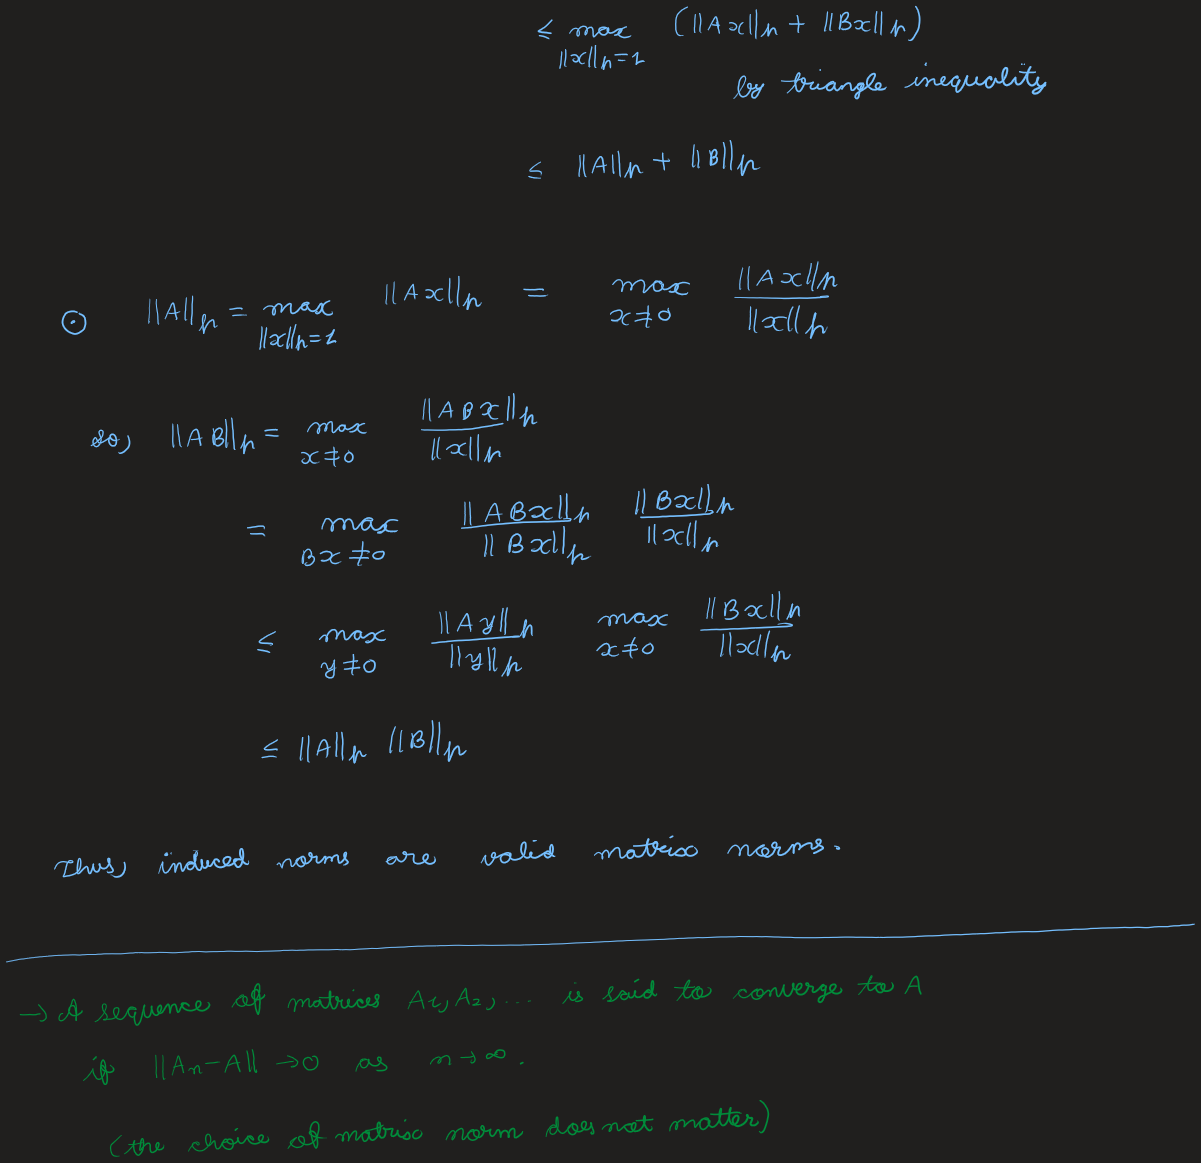 ≤ max (||Ax||p + ||Bx||p)
||x||p=1
by triangle inequality
≤ ||A||p + ||B||p
⊙ ||A||p = max ||Ax||p = max ||Ax||p / ||x||p
||x||p=1 x≠0
so, ||AB||p = max ||ABx||p / ||x||p
x≠0
= max ||ABx||p / ||Bx||p ||Bx||p / ||x||p
Bx≠0
≤ max ||Ay||p / ||y||p max ||Bx||p / ||x||p
y≠0 x≠0
≤ ||A||p ||B||p
Thus, induced norms are valid matrix norms.
→ A sequence of matrices A1, A2, ... is said to converge to A
if ||An-A|| → 0 as n → ∞.
(the choice of matrix norm does not matter)